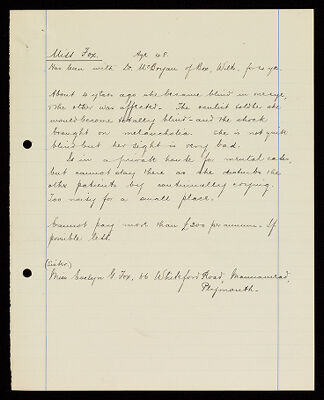 Miss Fox. Age 48.
Has been with Dr. McBryan of Box, Wilts. for 20 yr.
About 4 years ago she became blind in one eye,
& the other was affected - The oculist told her she
would become totally blind - and the shock
brought on melancholia. She is not quite
blind but her sight is very bad.
Is in a private house for mental cases,
but cannot stay there as she disturbs the
other patients by continually crying.
Too noisy for a small place.
Cannot pay more than £200 per annum - If
possible less.
(Sister)
Miss Evelyn G. Fox, 86 Whiteford Road, Mannamead,
Plymouth -